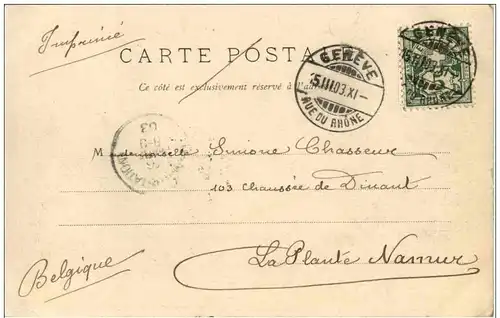 Imprimé
CARTE POSTA
Ce côté est exclusivement réservé à l'adr
GENÈVE
15.III.03.XI-
RUE DU RHÔNE
GENÈVE
15.III.03.XI
RHÔNE
03
STATION
Mademoiselle Simone Chasseur
103 chaussée de Dinant
La Plante Namur
Belgique